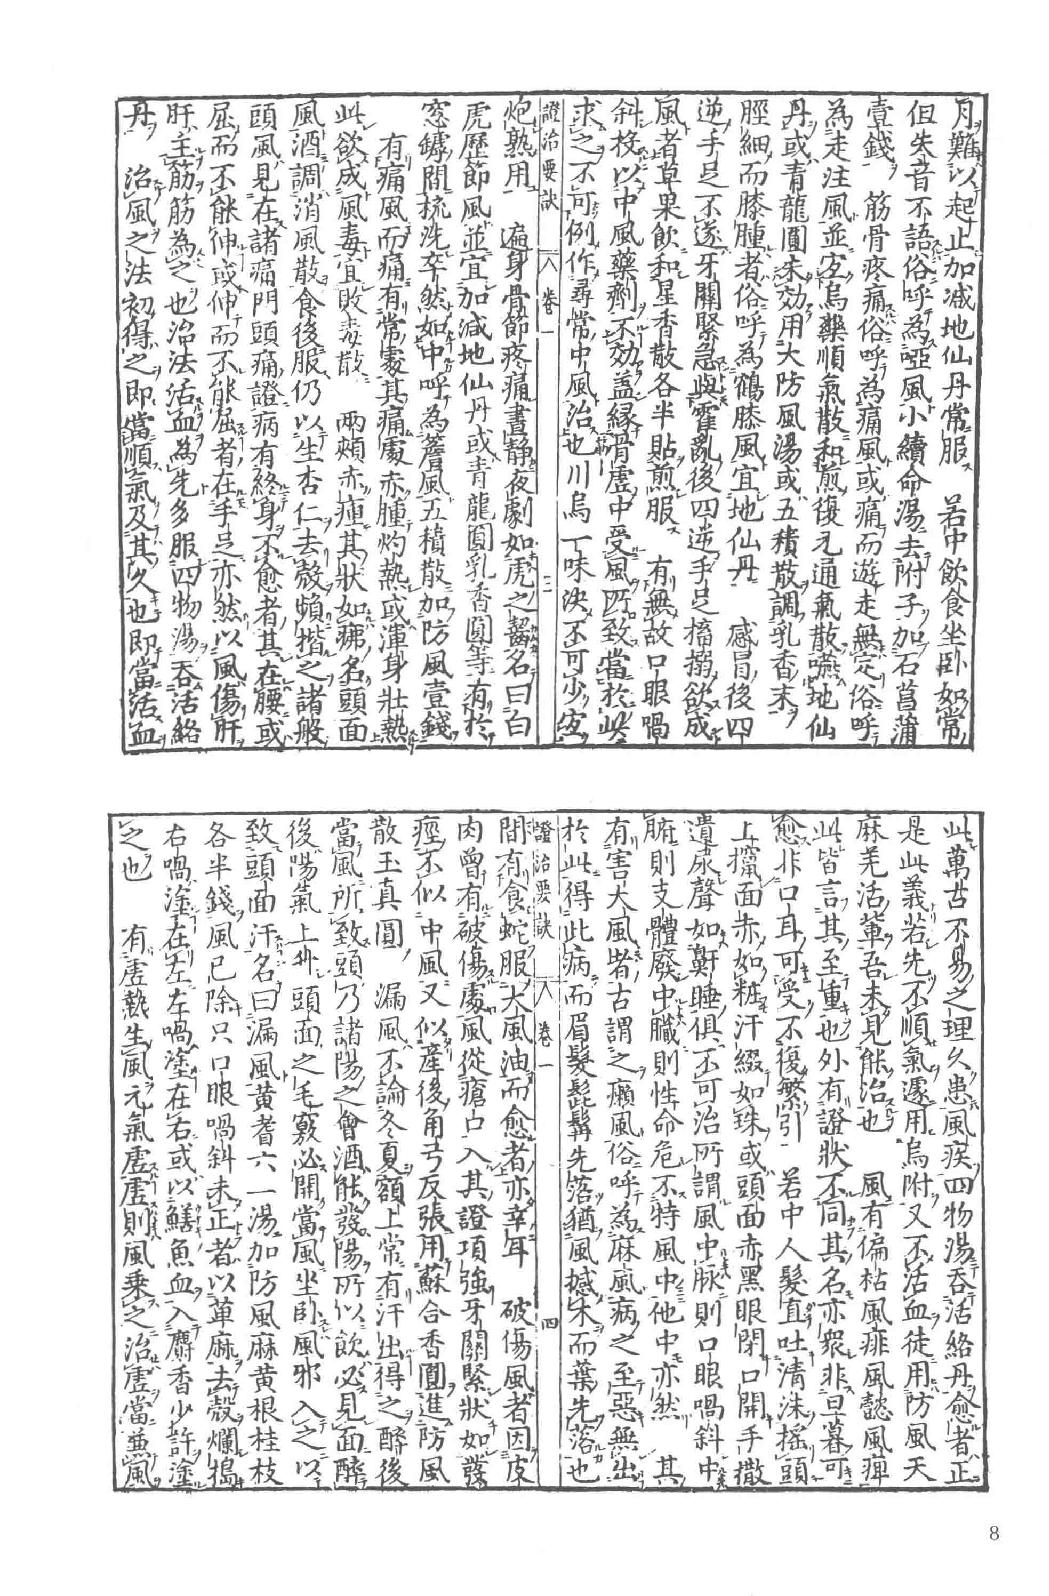 月難以起止加减地仙丹常服　若中飲食坐卧如常
但失音不語俗呼為啞風小續命湯去附子加石菖蒲
壹錢　筋骨疼痛俗呼為痛風或痛而遊走無定俗呼
為走注風並宜烏藥順氣散和煎復元通氣散嚥地仙
丹或青龍圓未効用大防風湯或五積散調乳香末
脛細而膝腫者俗呼為鶴膝風宜地仙丹　感冒後四
逆手足不遂牙關緊急與霍亂後四逆手足搐搦欲成
風者草果飲和星香散各半貼煎服　有無故口眼喎
斜投以中風藥劑不効蓋縁骨虚中受風所致當於此
求之不可例作尋常中風治也川烏一味决不可少宜
證治要訣　卷一　三
炮熟用　遍身骨節疼痛晝静夜劇如虎之齧名曰白
虎歷節風並宜加减地仙丹或青龍圓乳香圓等有於
窓罅間梳洗卒然如中呼為簷風五積散加防風壹錢
有痛風而痛有常處其痛處赤腫灼熱或渾身壯熱
此欲成風毒宜敗毒散　兩頰赤瘇其狀如痱名頭面
風酒調消風散食後服仍以生杏仁去殻頻揩之諸般
頭風見在諸痛門頭痛證病有終身不愈者其在腰或
屈而不能伸或伸而不能屈者在手足亦然以風傷肝
肝主筋筋為之也治法活血為先多服四物湯吞活絡
丹　治風之法初得之即當順氣及其久也即當活血
此萬古不易之理久患風疾四物湯吞活絡丹愈者正
是此義若先不順氣遽用烏附又不活血徒用防風天
麻羌活輩吾未見能治也　風有偏枯風痱風懿風痺
此皆言其至重也外有證狀不同其名亦衆非旦暮可
愈非口耳可受不復繁引　若中人髮直吐清沫搖頭
上攛面赤如粧汗綴如珠或頭面赤黑眼閉口開手撒
遺尿聲如鼾睡俱不可治所謂風中脉則口眼喎斜中
腑則支體廢中臟則性命危不特風中他中亦然　其
有害大風者古謂之癩風俗呼為麻風病之至惡無出
於此得此病而眉髮髭髯先落猶風撼木而葉先落也
證治要訣　卷一　四
間有食蛇服大風油而愈者亦幸耳　破傷風者因皮
肉曾有破傷處風從瘡口入其證項強牙關緊狀如發
痙不似中風又似産後角弓反張用蘇合香圓進防風
散玉真圓　漏風不論冬夏額上常有汗出得之醉後
當風所致頭乃諸陽之會酒能發陽所以飲必見面醉
後陽氣上升頭面之毛竅必開當風坐卧風邪入之以
致頭面汗名曰漏風黄耆六一湯加防風麻黄根桂枝
各半錢風已除只口眼喎斜未正者以萆麻去殻爛搗
右喎塗在左左喎塗在右或以鱔魚血入麝香少許塗
之也　有虚熱生風元氣虚虚則風乗之治虚當兼風
8